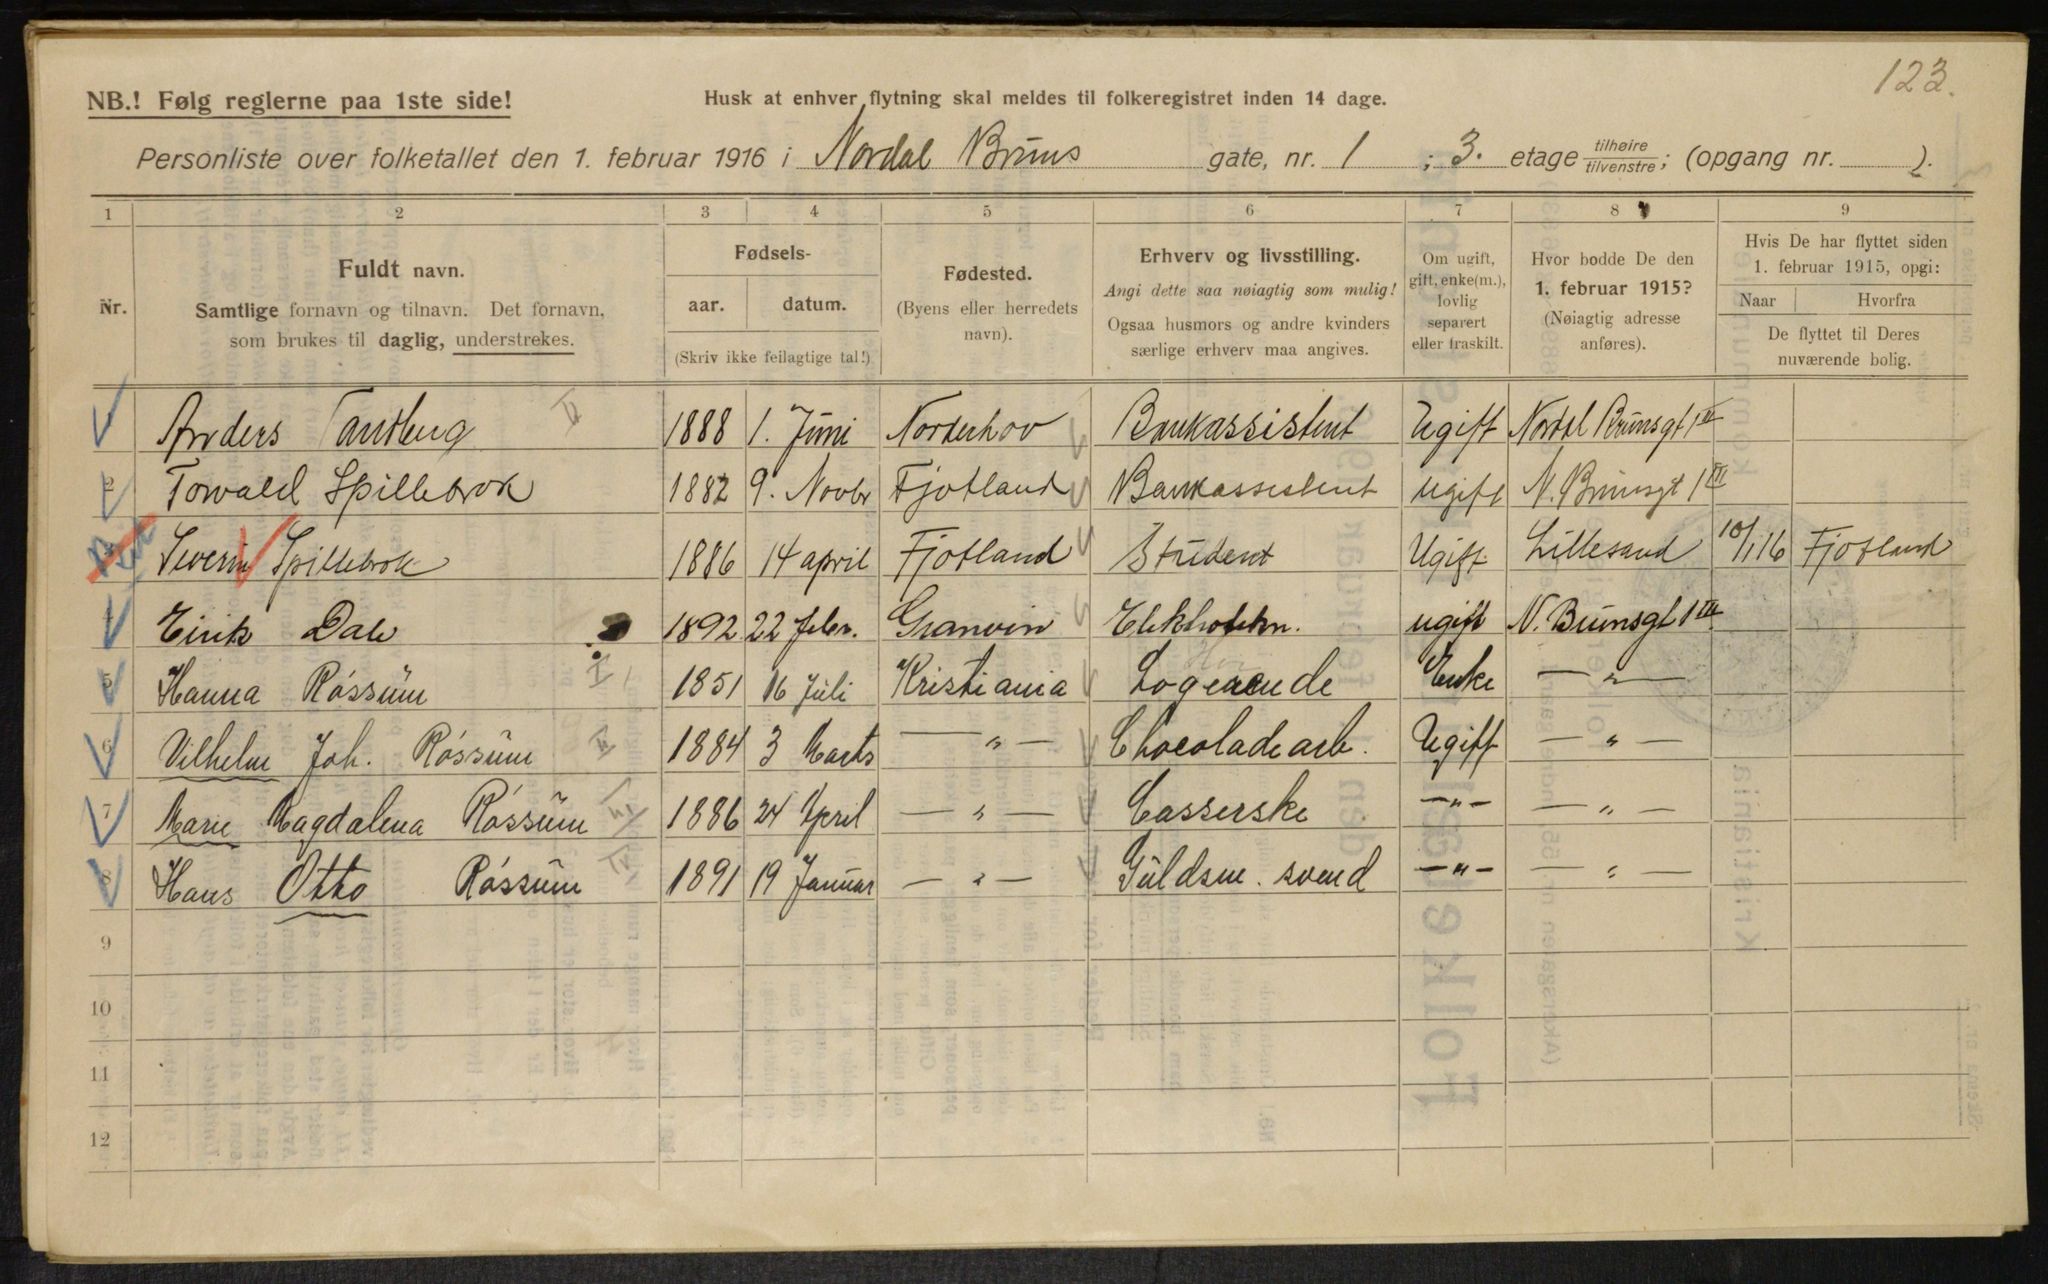 123.
NB.! Følg reglerne paa 1ste side!
Husk at enhver flytning skal meldes til folkeregistret inden 14 dage.
Personliste over folketallet den 1. februar 1916 i Nordal Bruns gate, nr. 1 ; 3. etage tilhøire tilvenstre; (opgang nr. ).
1 2 3 4 5 6 7 8 9
Nr.
Fuldt navn.
Samtlige fornavn og tilnavn. Det fornavn,
som brukes til daglig, understrekes.
Fødsels-
aar. datum.
(Skriv ikke feilagtige tal!)
Fødested.
(Byens eller herredets
navn).
Erhverv og livsstilling.
Angi dette saa nøiagtig som mulig!
Ogsaa husmors og andre kvinders
særlige erhverv maa angives.
Om ugift,
gift, enke(m.),
lovlig
separert
eller fraskilt.
Hvor bodde De den
1. februar 1915?
(Nøiagtig adresse
anføres).
Hvis De har flyttet siden
1. februar 1915, opgi:
Naar Hvorfra
De flyttet til Deres
nuværende bolig.
1 Anders Tandberg 1888 1. Juni Norderhov Bankassistent Ugift Nordal Brunsgt 1 III
2 Torvald Spillebrok 1882 9. Novbr Fjotland Bankassistent Ugift N. Brunsgt 1 III
3 Severin Spillebrok 1886 14 april Fjotland Student Ugift Lillesand 10/1 16 Fjotland
4 Eirik Dale 1892 22 febr. Granvin ugift N. Brunsgt 1 III
5 Hanna Róssum 1851 16 Juli Kristiania Logerende Enke — " —
6 Vilhelm Joh. Róssum 1884 3 Marts — " — Chocoladearb. Ugift — " —
7 Marie Magdalena Róssum 1886 24 April — " — Casserske — " — — " —
8 Hans Otto Róssum 1891 19 Januar — " — Guldsm. svend — " — — " —
9
10
11
12